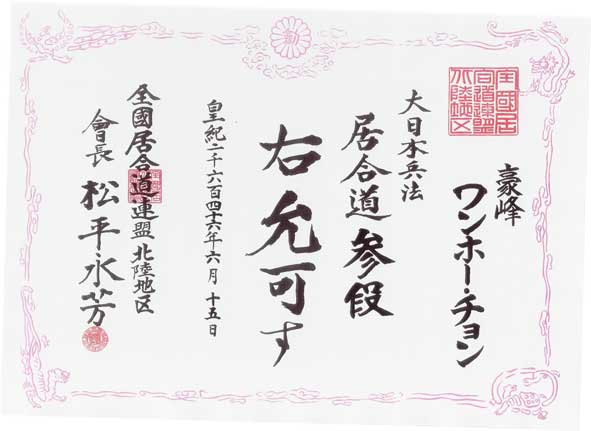 全國居
合道連盟
北陸地区
豪峰
ワンホー・チョン
大日本兵法
居合道参段
右允可す
皇紀二千六百四十六年六月十五日
全國居合道連盟北陸地区
會長 松平永芳